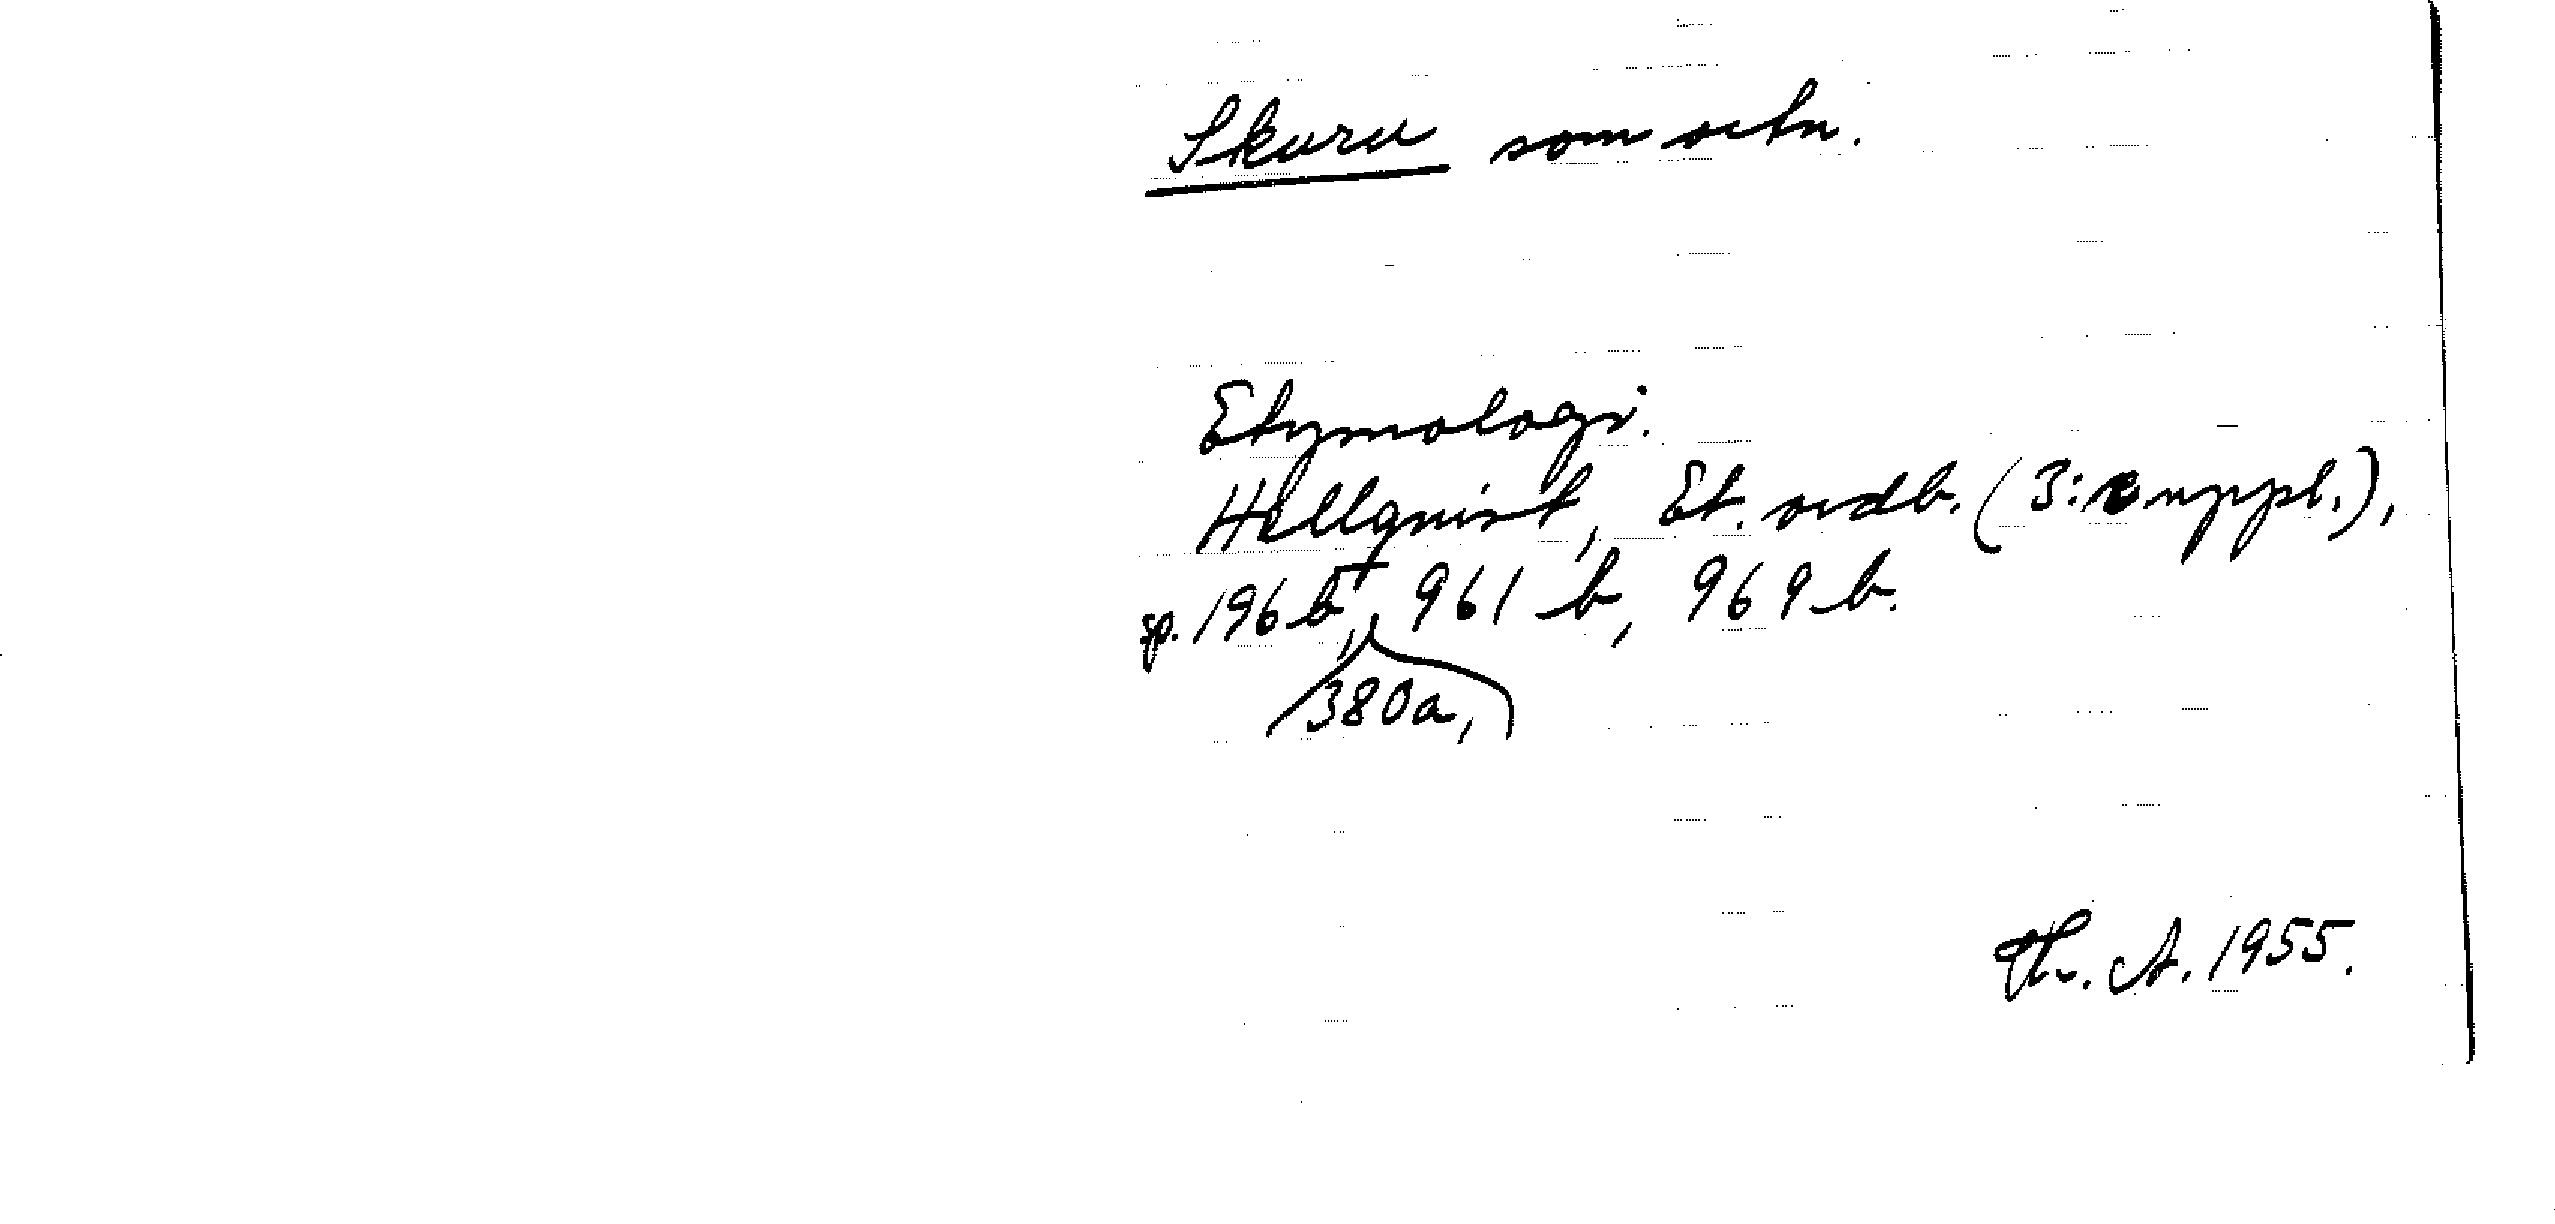 Skuru som ortn.
Etymologi.
Hellquist, Et. ordb. (3:e uppl.),
sp. 196 b, 961 b, 969 b.
380a,
Th. A. 1955.